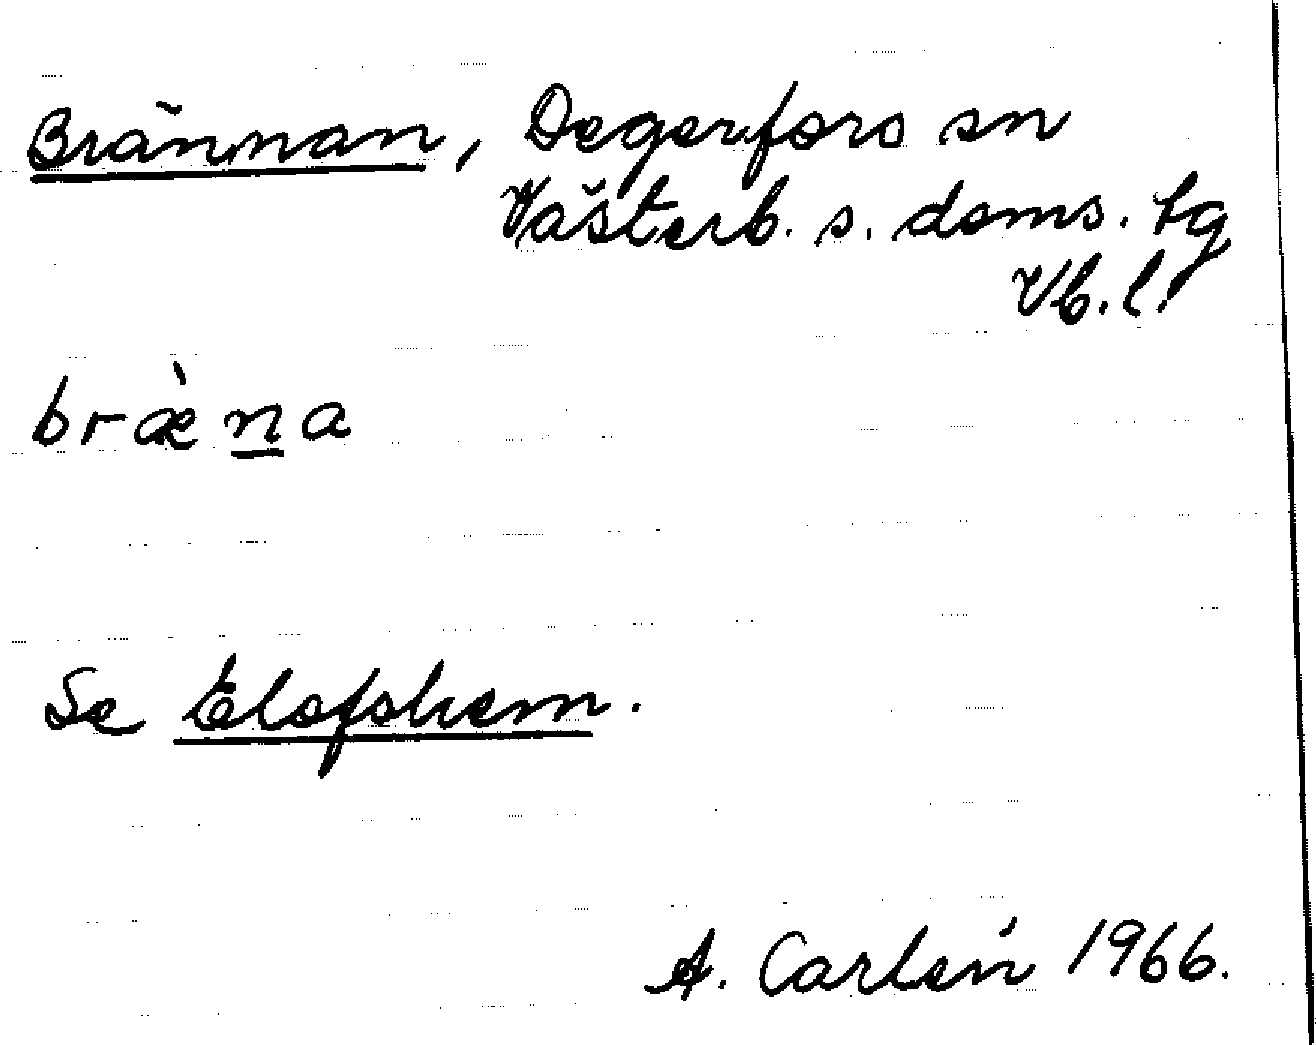 Brännan, Degerfors sn
Västerb. s. doms. tg
Vb. l.
bræ̀n̲a
Se Elofshem.
A. Carlén 1966.